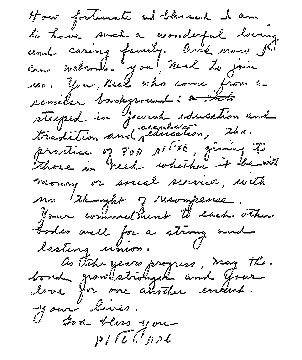 How fortunate and blessed I am
to have such a wonderful loving
and caring family. And now
can welcome you, Neal to join
us. You, Neal who come from a
similar background:
steeped in Jewish education and
tradition and secular education, the
practice of גמילות חסדים, giving to
those in need whether it be with
money or social service, with
no thought of recompense.
Your commitment to each other
bodes well for a strong and
lasting union.
As the years progress, may the
bond grow stronger and your
love for one another enrich
your lives.
God bless you